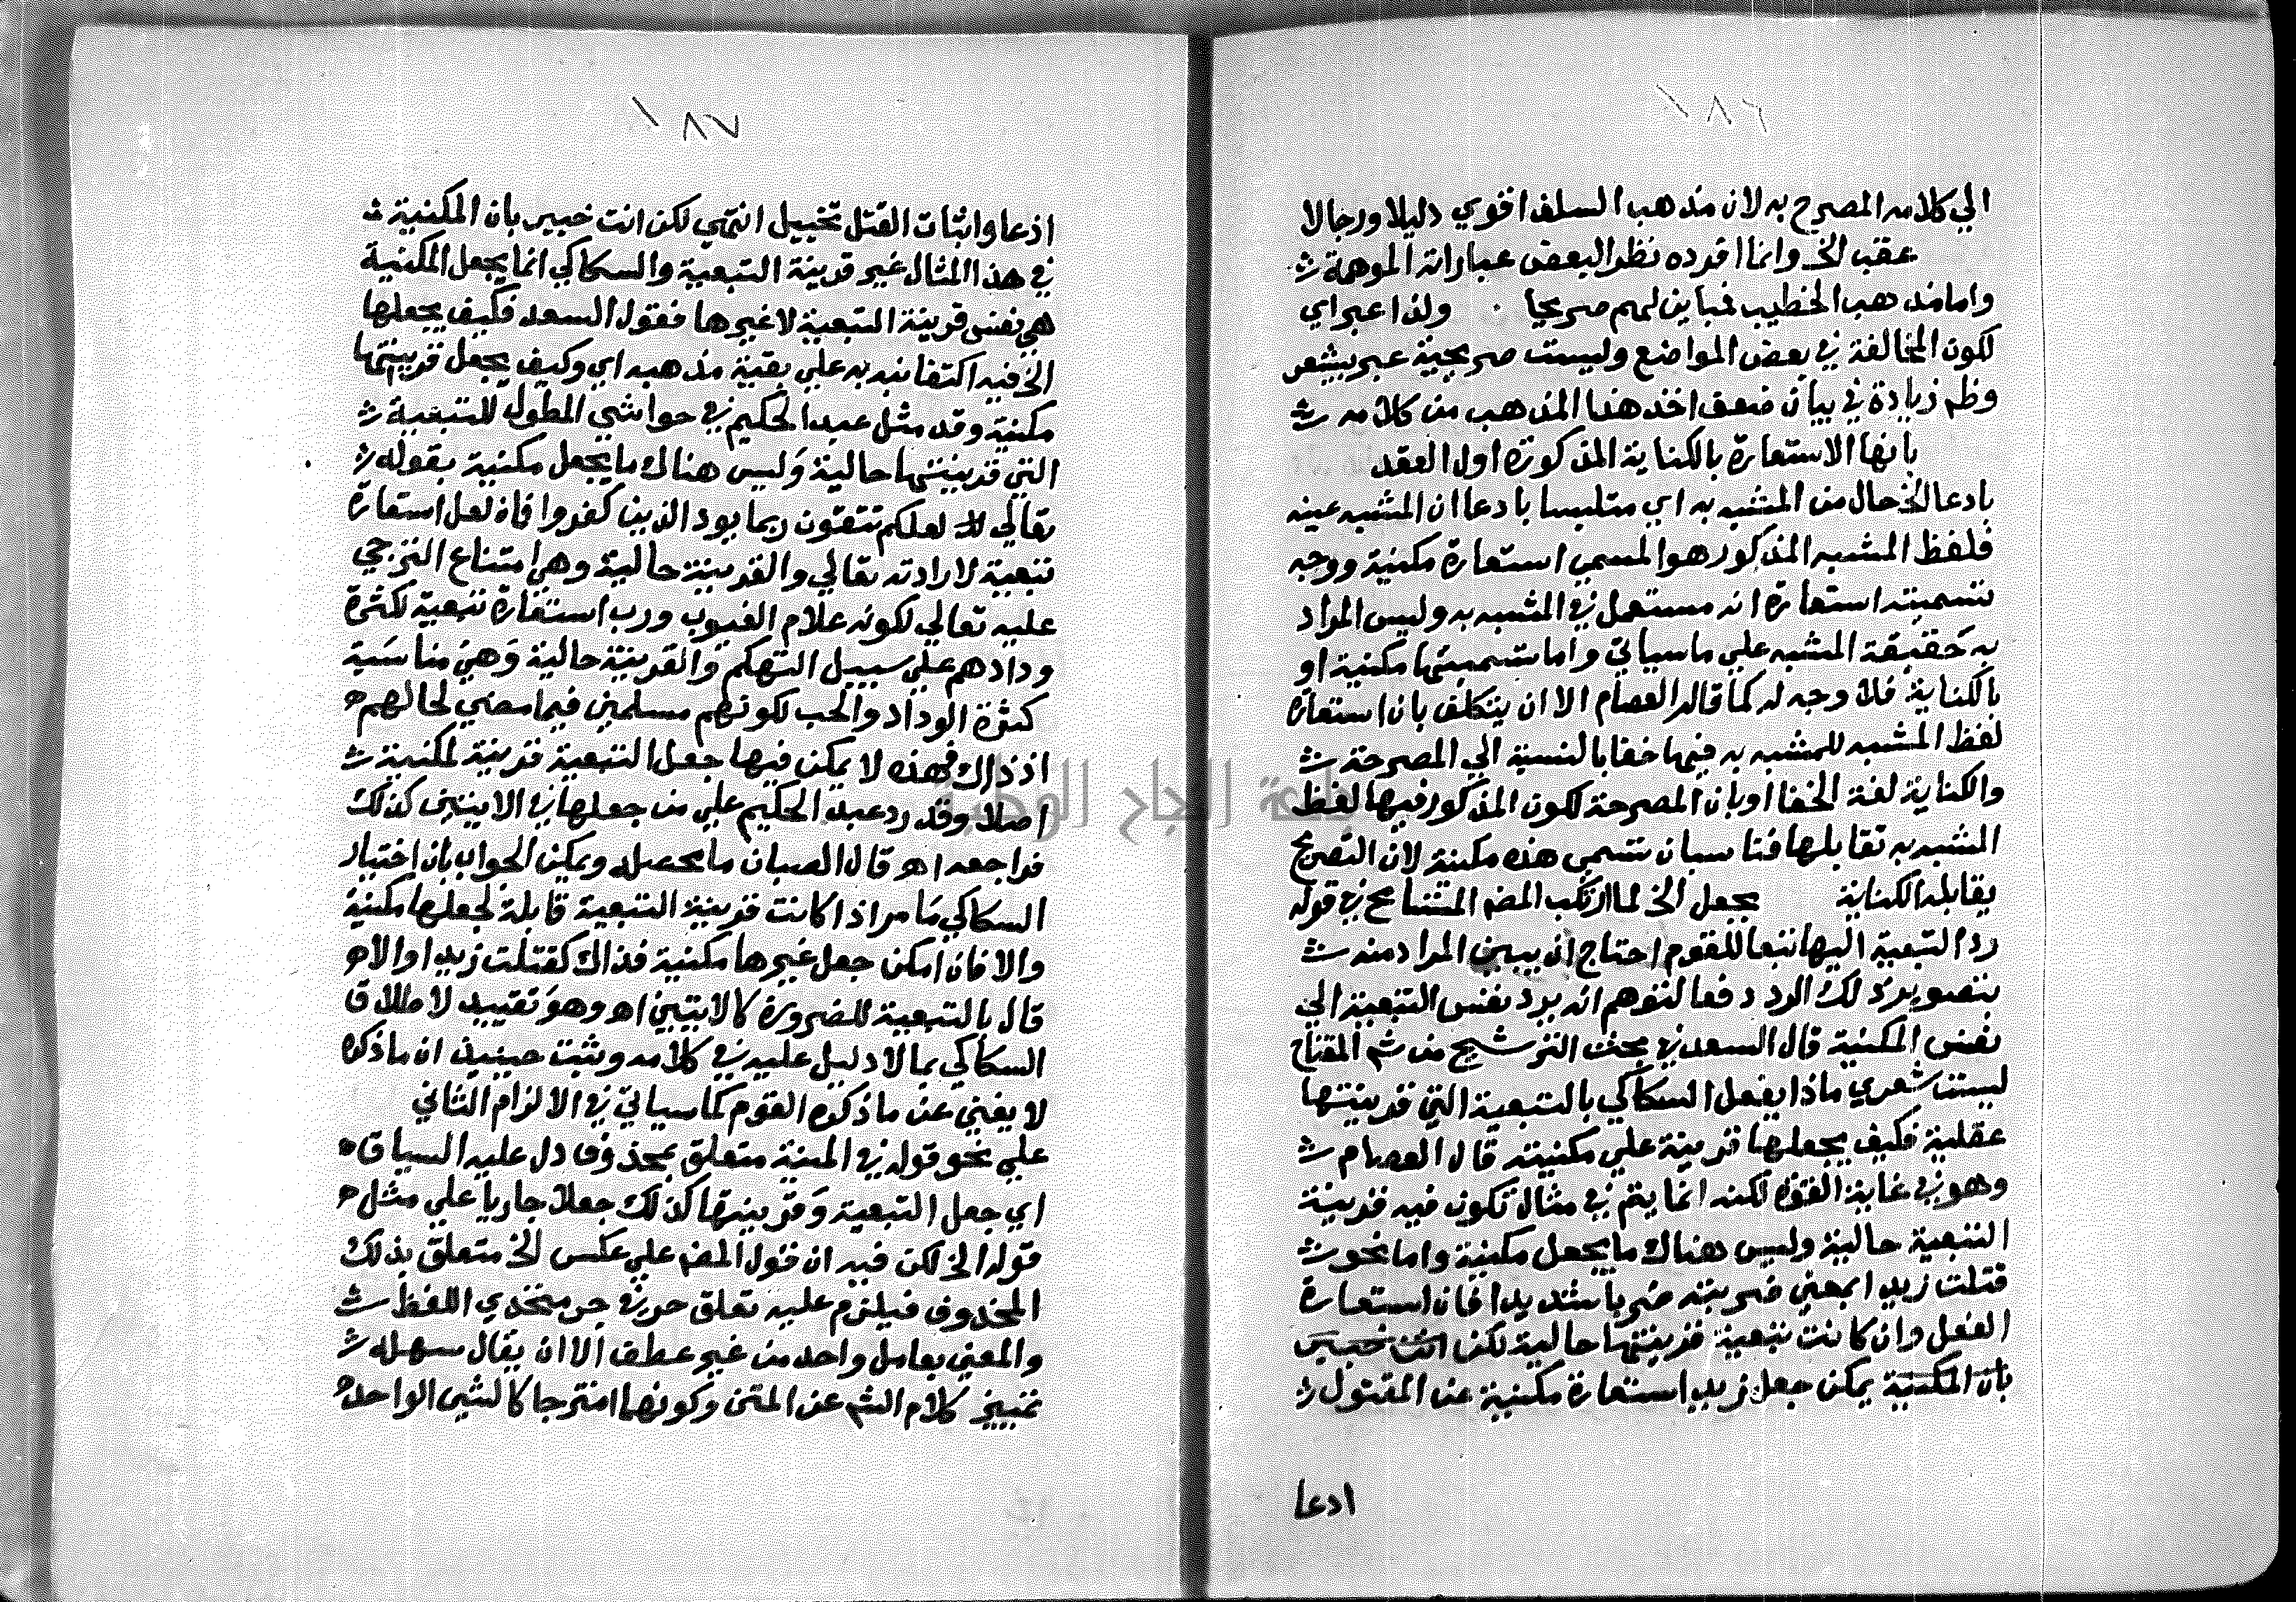 ١٨٦
الي كلامه المصرح به لان مذهب السلف اقوي دليلا ورجالا
عقب الخ وانما افرده نظرا لبعض عباراته الموهمة
واما مذهب الخطيب فمباين لهم صريحا ولذا عبر اي
لكون المخالفة في بعض المواضع وليست صريحية عبر بيشعر
وظم زيادة في بيان ضعف اخذ هذا المذهب من كلامه
بانها الاستعارة بالكناية المذكورة اول العقد
بادعا الخ حال من المشبه به اي متلبسا بادعا ان المشبه عينه
فلفظ المشبه المذكور هو المسمي استعارة مكنية ووجه
تسميته استعارة انه مستعمل في المشبه به وليس المراد
به حقيقة المشبه علي ما سياتي واما تسميتها مكنية او
بالكناية فلا وجه له كما قاله العصام الا ان يتكلف بان استعارة
لفظ المشبه للمشبه به فيها خفا بالنسبة الي المصرحة
والكناية لغة الخفا او بان المصرحة لكون المذكور فيها لفظ
المشبه به تقابلها فناسب ان تسمي هذه مكنية لان التصريح
يقابله الكناية يجعل الخ لما ارتكب المصم المتسامح في قوله
رد التبعية اليها تبعا للقوم احتاج ان يبين المراد منه
بتصوير ذلك الرد دفعا لتوهم انه يرد نفس التبعية الي
نفس المكنية قال السعد في بحث الترشيح من شم المفتاح
ليست شعري ماذا يفعل السكاكي بالتبعية التي قرينتها
عقلية فكيف يجعلها قرينة علي مكنيته قال العصام
وهو في غاية القوة لكنه انما يتم في مثال تكون فيه قرينة
التبعية حالية وليس هناك ما يجعل مكنية واما نحو
قتلت زيدا بمعني ضربته ضربا شديدا فان استعارة
الفعل وان كانت تبعية قرينتها حالية لكن انت خبير
بان المكنية يمكن جعل زيد استعارة مكنية عن المقتول
ادعا
١٨٧
ادعا واثبات القتل تخييل انتهي لكن انت خبير بان المكنية
في هذا المثال غير قرينة التبعية والسكاكي انما يجعل المكنية
هي نفس قرينة التبعية لا غيرها فقول السعد فكيف يجعلها
الخ فيه اكتفا نبه به علي بقية مذهبه اي وكيف يجعل قرينتها
مكنية وقد مثل عبد الحكيم في حواشي المطول للتبعية
التي قرينتها حالية وليس هناك ما يجعل مكنية بقوله
تعالي لعلكم تتقون ربما يود الذين كفروا فان لعل استعارة
تبعية لارادته تعالي والقرينة حالية وهي امتناع الترجي
عليه تعالي لكونه علام الغيوب ورب استعارة تبعية لكثرة
ودادهم علي سبيل التهكم والقرينة حالية وهي مناسبة
كثرة الوداد والحب لكونهم مسلمين فيما مضي لحالهم
اذ ذاك فهذه لا يمكن فيها جعل التبعية قرينة لمكنية
اصلا وقد رد عبد الحكيم علي من جعلها في الايتين كذلك
فراجعه اه قال الصبان ما محصله ويمكن الجواب بان اختيار
السكاكي مامر اذا كانت قرينة التبعية قابلة لجعلها مكنية
والا فان امكن جعل غيرها مكنية فذاك كقتلت زيدا والا
قال بالتبعية للضرورة كالايتين اه وهو تقييد لاطلاق
السكاكي بما لا دليل عليه في كلامه ويثبت حينيذ ان ما ذكره
لا يغني عن ما ذكره القوم كما سياتي في الالزام الثاني
علي نحو قوله في المنية متعلق بمحذوف دل عليه السياق
اي جعل التبعية وقرينتها كذلك جعلا جاريا علي مثل
قوله الخ لكن فيه ان قول المصم علي عكس الخ متعلق بذلك
المحذوف فيلزم عليه تعلق حرفي جر متحدي اللفظ
والمعني بعامل واحد من غير عطف الا ان يقال سهله
تمييز كلام الشم عن المتن وكونهما امتزجا كالشي الواحد